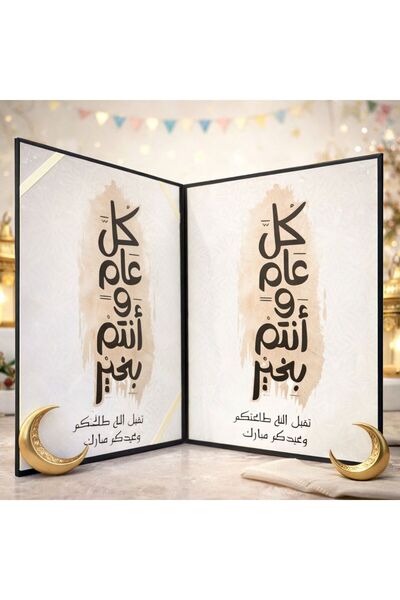 كُلَّ
عَام
وَ
أَنتُمْ
بِخَيْر
تقبل الله طاعتكم
وعيدكم مبارك
كُلَّ
عَام
وَ
أَنتُمْ
بِخَيْر
تقبل الله
وعيدكم مبارك